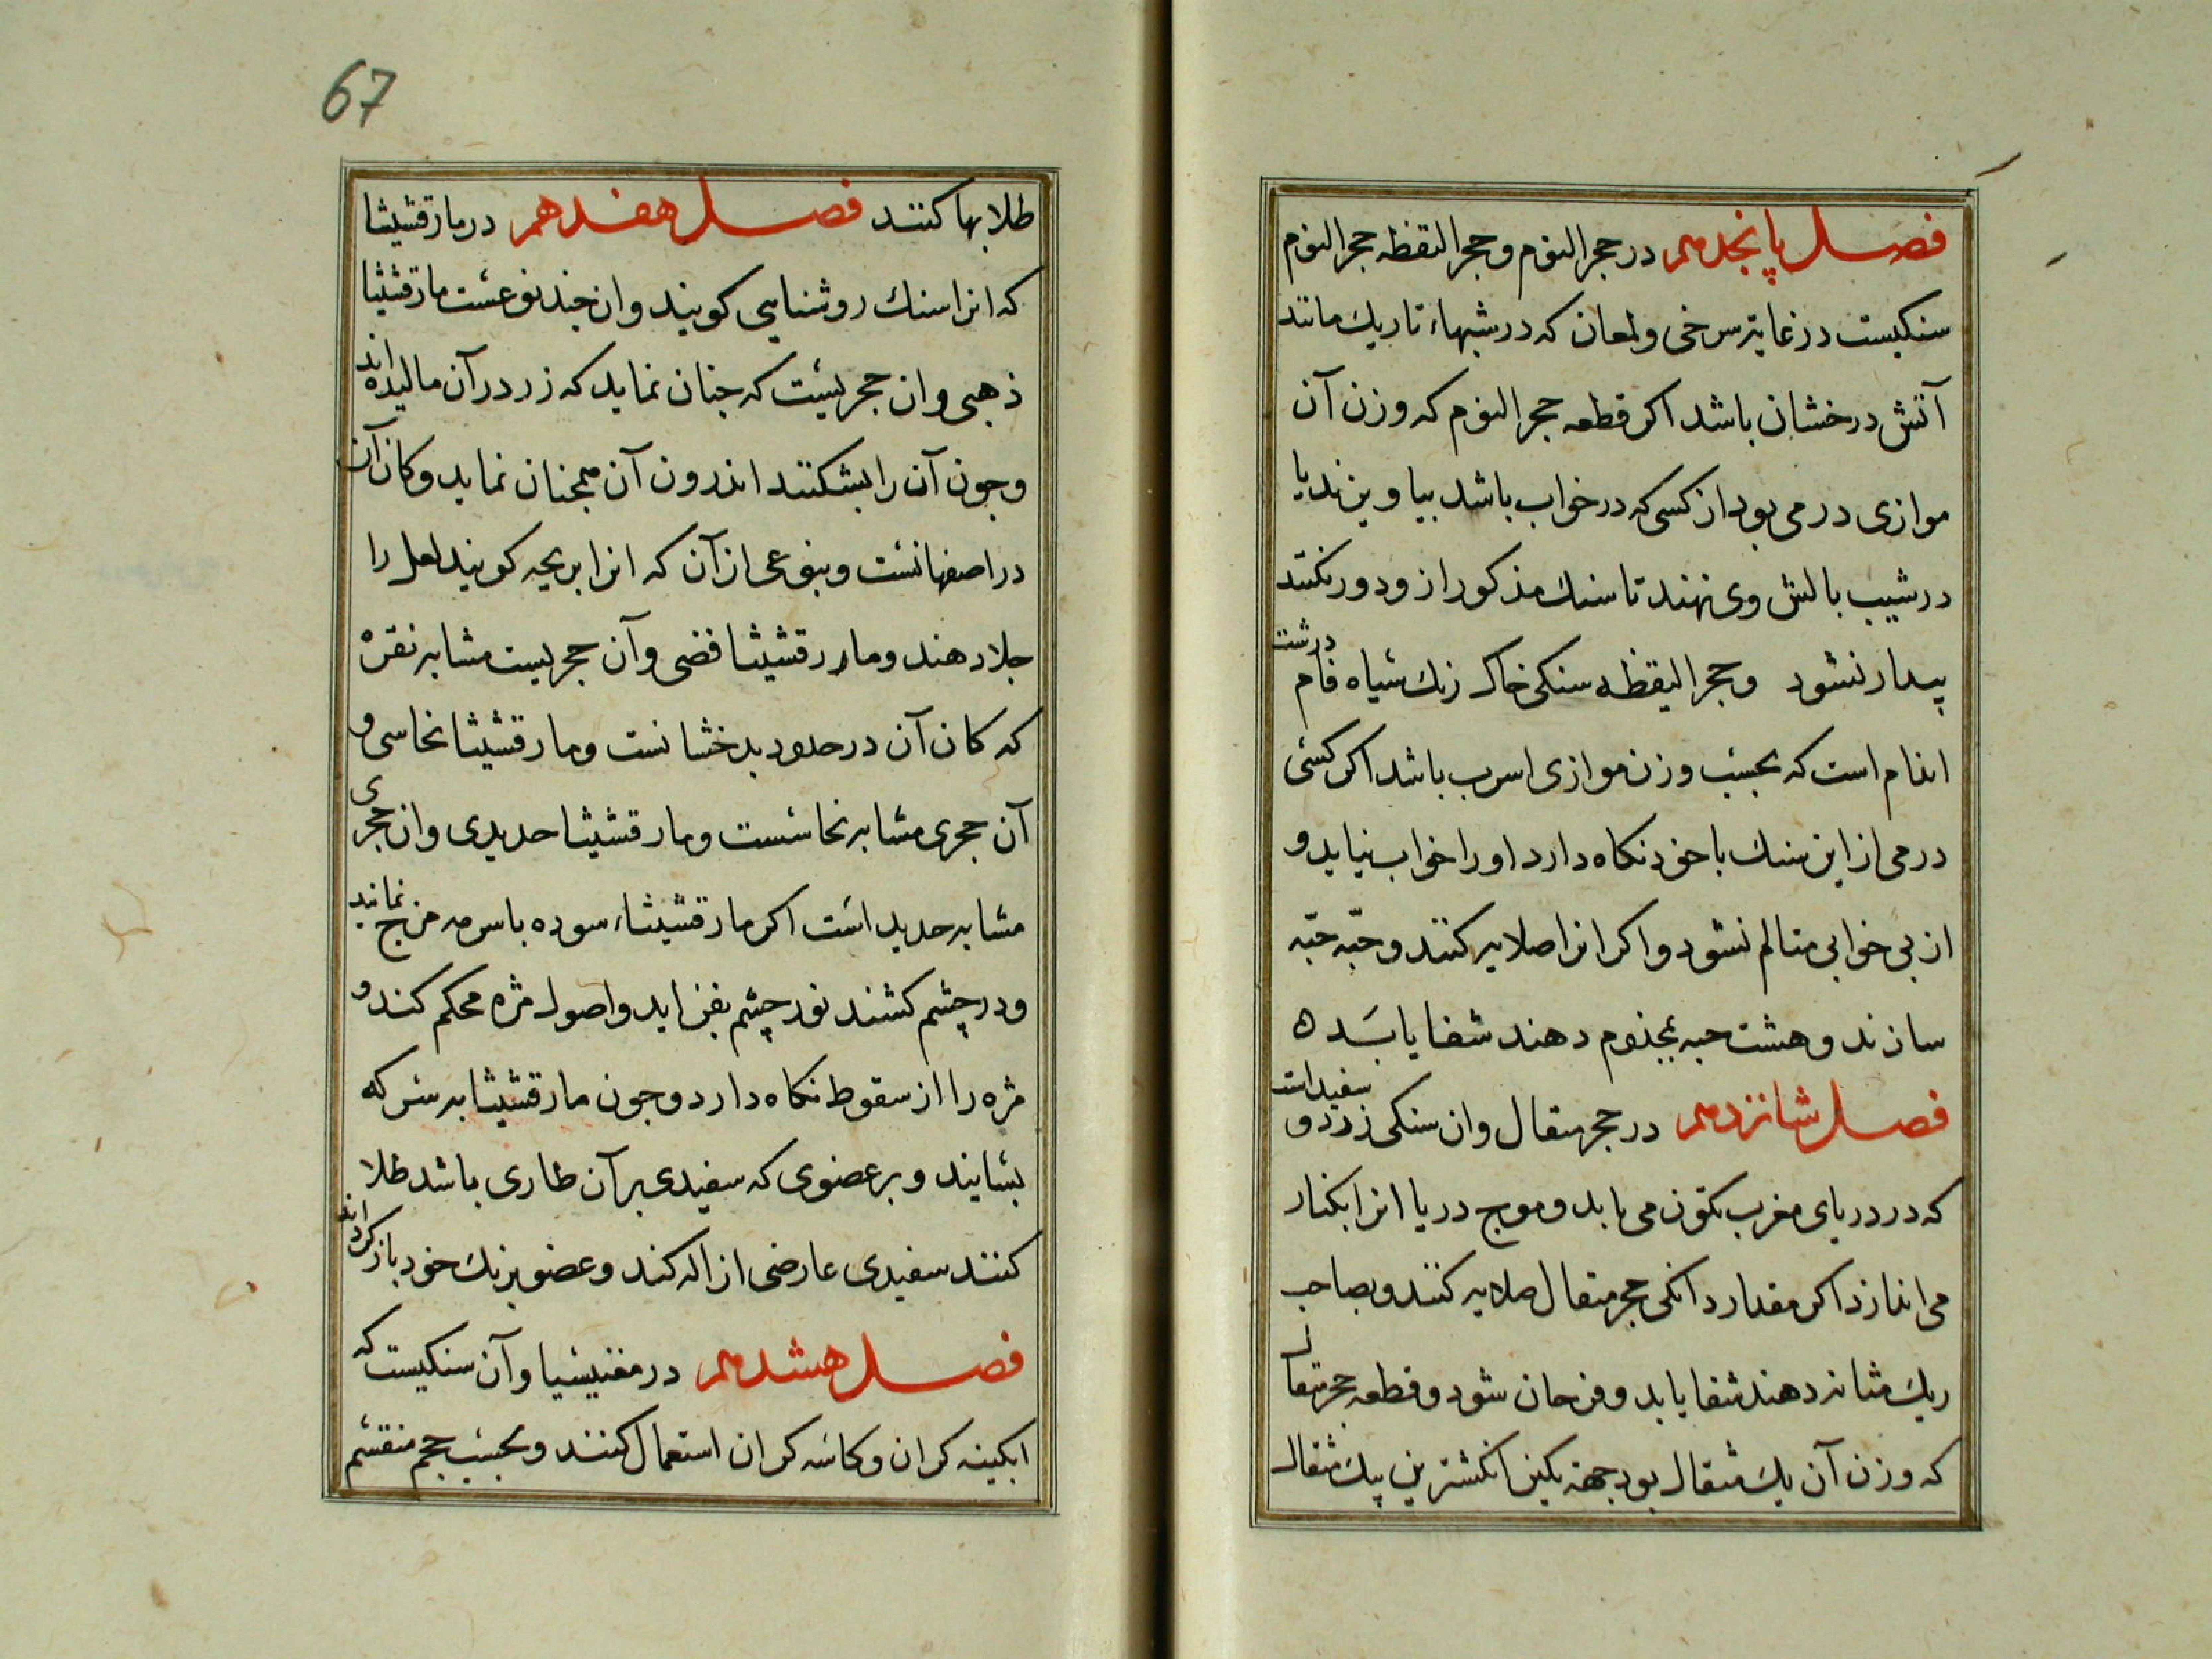 فصل پانجدهم در حجر النوم و حجر الیقظه حجر النوم
سنکیست در غایة سرخی و لمعان که در شبهاء تاریك مانند
آتش درخشان باشد اکر قطعه حجر النوم که وزن آن
موازی درمی بود از کسی که در خواب باشد بیاویزند یا
در شیب بالش وی نهند تا سنك مذکور از و دور نکنند
بیدار نشود و حجر الیقظه سنکی خاك رنك سیاه فام درشت
اندام است که بحسب وزن موازی اسرب باشد اکر کسی
درمی از این سنك با خود نکاه دارد او را خواب نیاید و
از بی خوابی متالم نشود و اکر انرا صلایه کنند و حبّه حبّه
سازند و هشت حبه بمجذوم دهند شفا یابد ه
فصل شانزدهم در حجر متقال وان سنکی زرد و سفید است
که در دریای مغرب تکون می یابد و موج دریا انرا بکنار
می اندازد اکر مقدار دانکی حجر متقال صلایه کنند و بصاحب
ریك مثانه دهند شفا یابد و فرحان شود و قطعه حجر متقال
که وزن آن یك مثقال بود جهة نکین انکشترین بیك مثقال
67
طلا بها کنند فصل هفدهم در مارقشیثا
که انرا سنك روشنایی کویند وان چند نوعست مارقشیثا
ذهبی وان حجریست که جنان نماید که زر در آن مالیده اند
وجون آن را بشکنند اندرون آن همجنان نماید و کان آن
در اصفهانست و بنوعی از آن که انرا بریجه کویند لعل را
جلا دهند و مارقشیثا فضی و آن حجریست مشابه نقره
که کان آن در حدود بدخشانست و مارقشیثا نحاسی و
آن حجری مشابه نحاسست و مارقشیثا حدیدی وان حجری
مشابه حدید است اکر مارقشیثاء سوده با سرمه مزج نمایند
و در چشم کشند نور چشم بفزاید و اصول مژه محکم کند و
مژه را از سقوط نکاه دارد و جون مارقشیثا به سرکه
بسایند و بر عضوی که سفیدی بر آن طاری باشد طلا
کنند سفیدی عارضی ازاله کند و عضو برنك خود باز کرداند
فصل هشدهم در مغنیسیا و آن سنکیست که
ابکینه کران و کاسه کران استعمال کنند و بحسب حجم منقسم